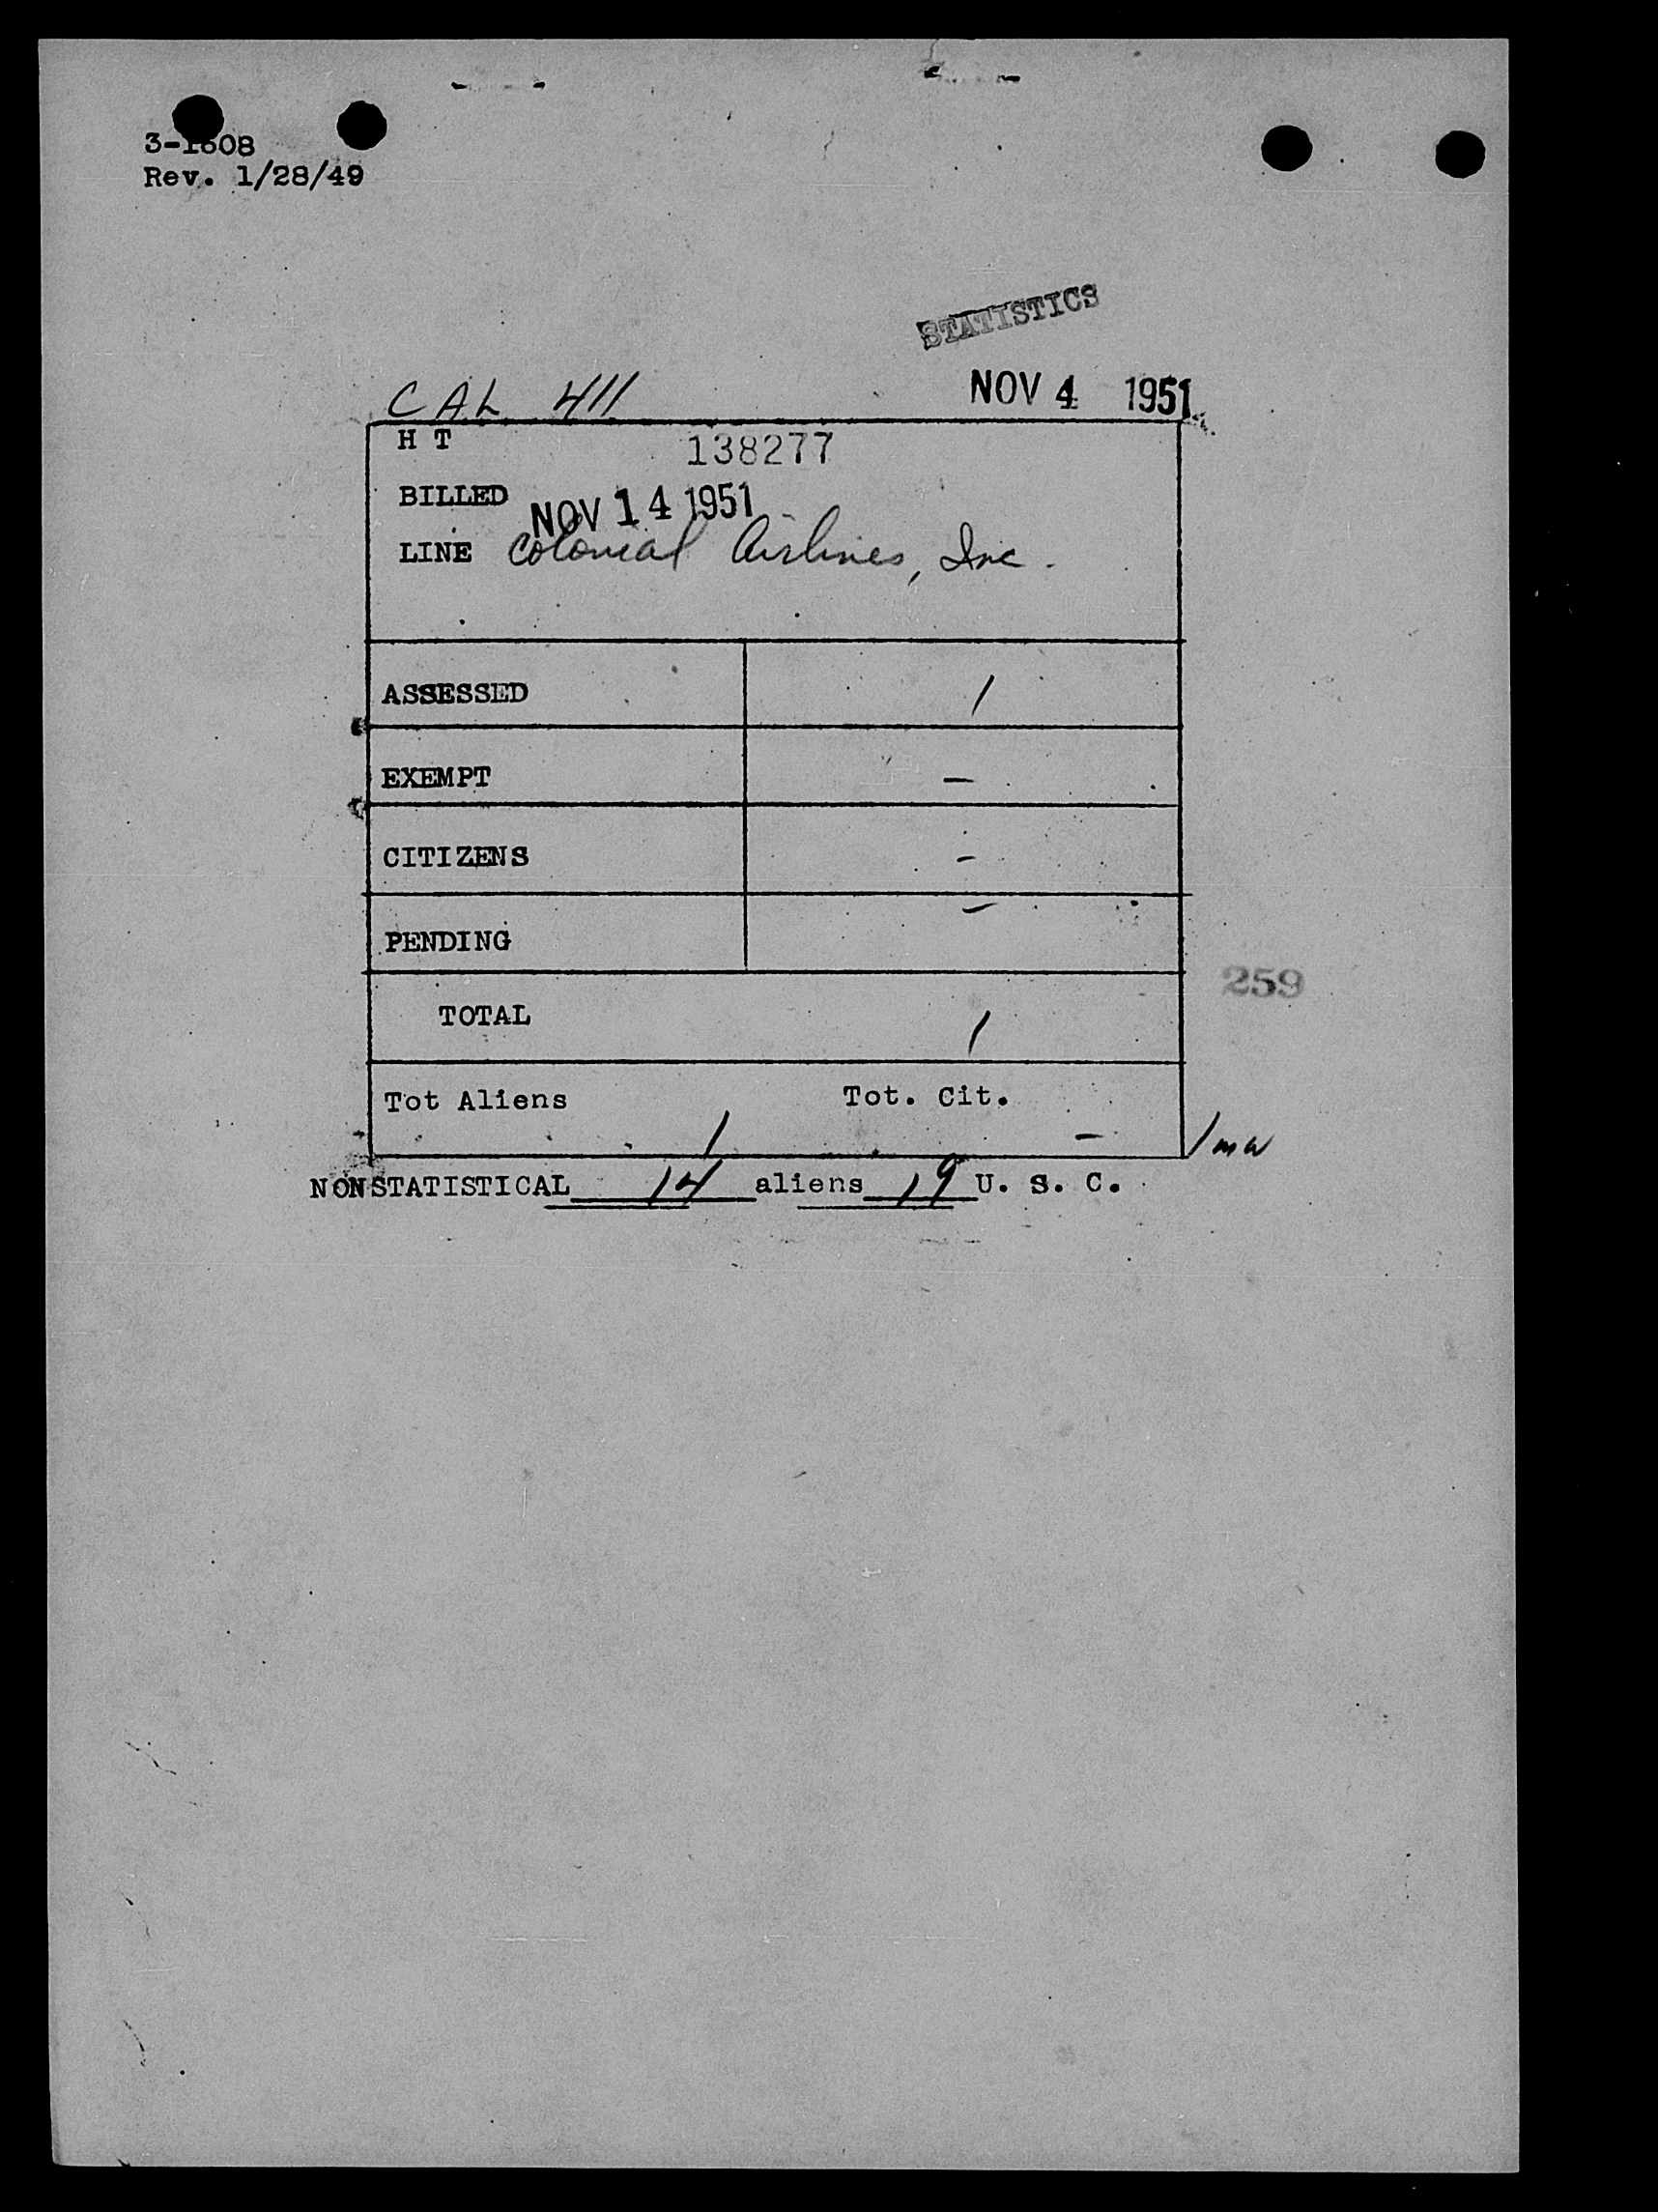 3-1608
Rev. 1/28/49
STATISTICS
CAL 411 NOV 4 1951
H T 138277
BILLED NOV 14 1951
LINE Colonial Airlines, Inc.
ASSESSED 1
EXEMPT -
CITIZENS -
PENDING -
259
TOTAL 1
Tot Aliens Tot. Cit.
1 - 1 mw
NONSTATISTICAL 14 aliens 19 U. S. C.